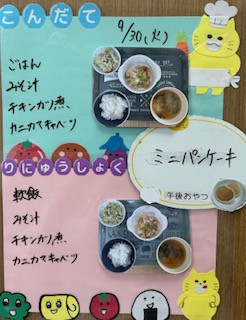 こんだて
9/30(火)
ごはん
みそ汁
チキンカツ煮
カニカマキャベツ
ミニパンケーキ
午後おやつ
りにゅうしょく
軟飯
みそ汁
チキンカツ煮
カニカマキャベツ